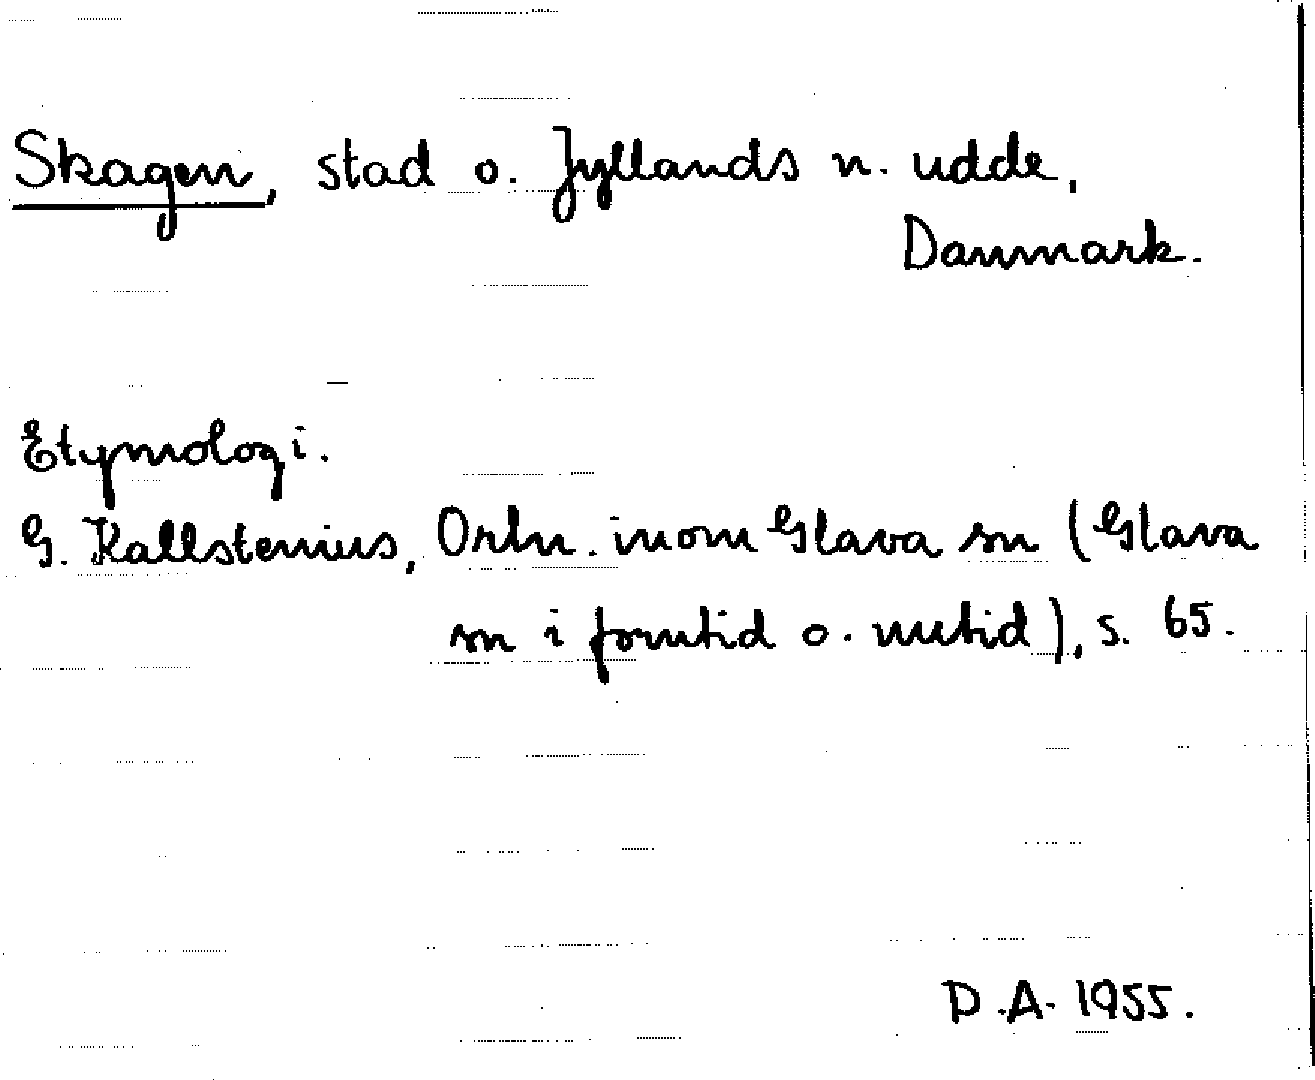 Skagen, stad o. Jyllands n. udde,
Danmark.
Etymologi.
G. Kallstenius, Ortn. inom Glava sn (Glava
sn i forntid o. nutid), s. 65.
D.A. 1955.